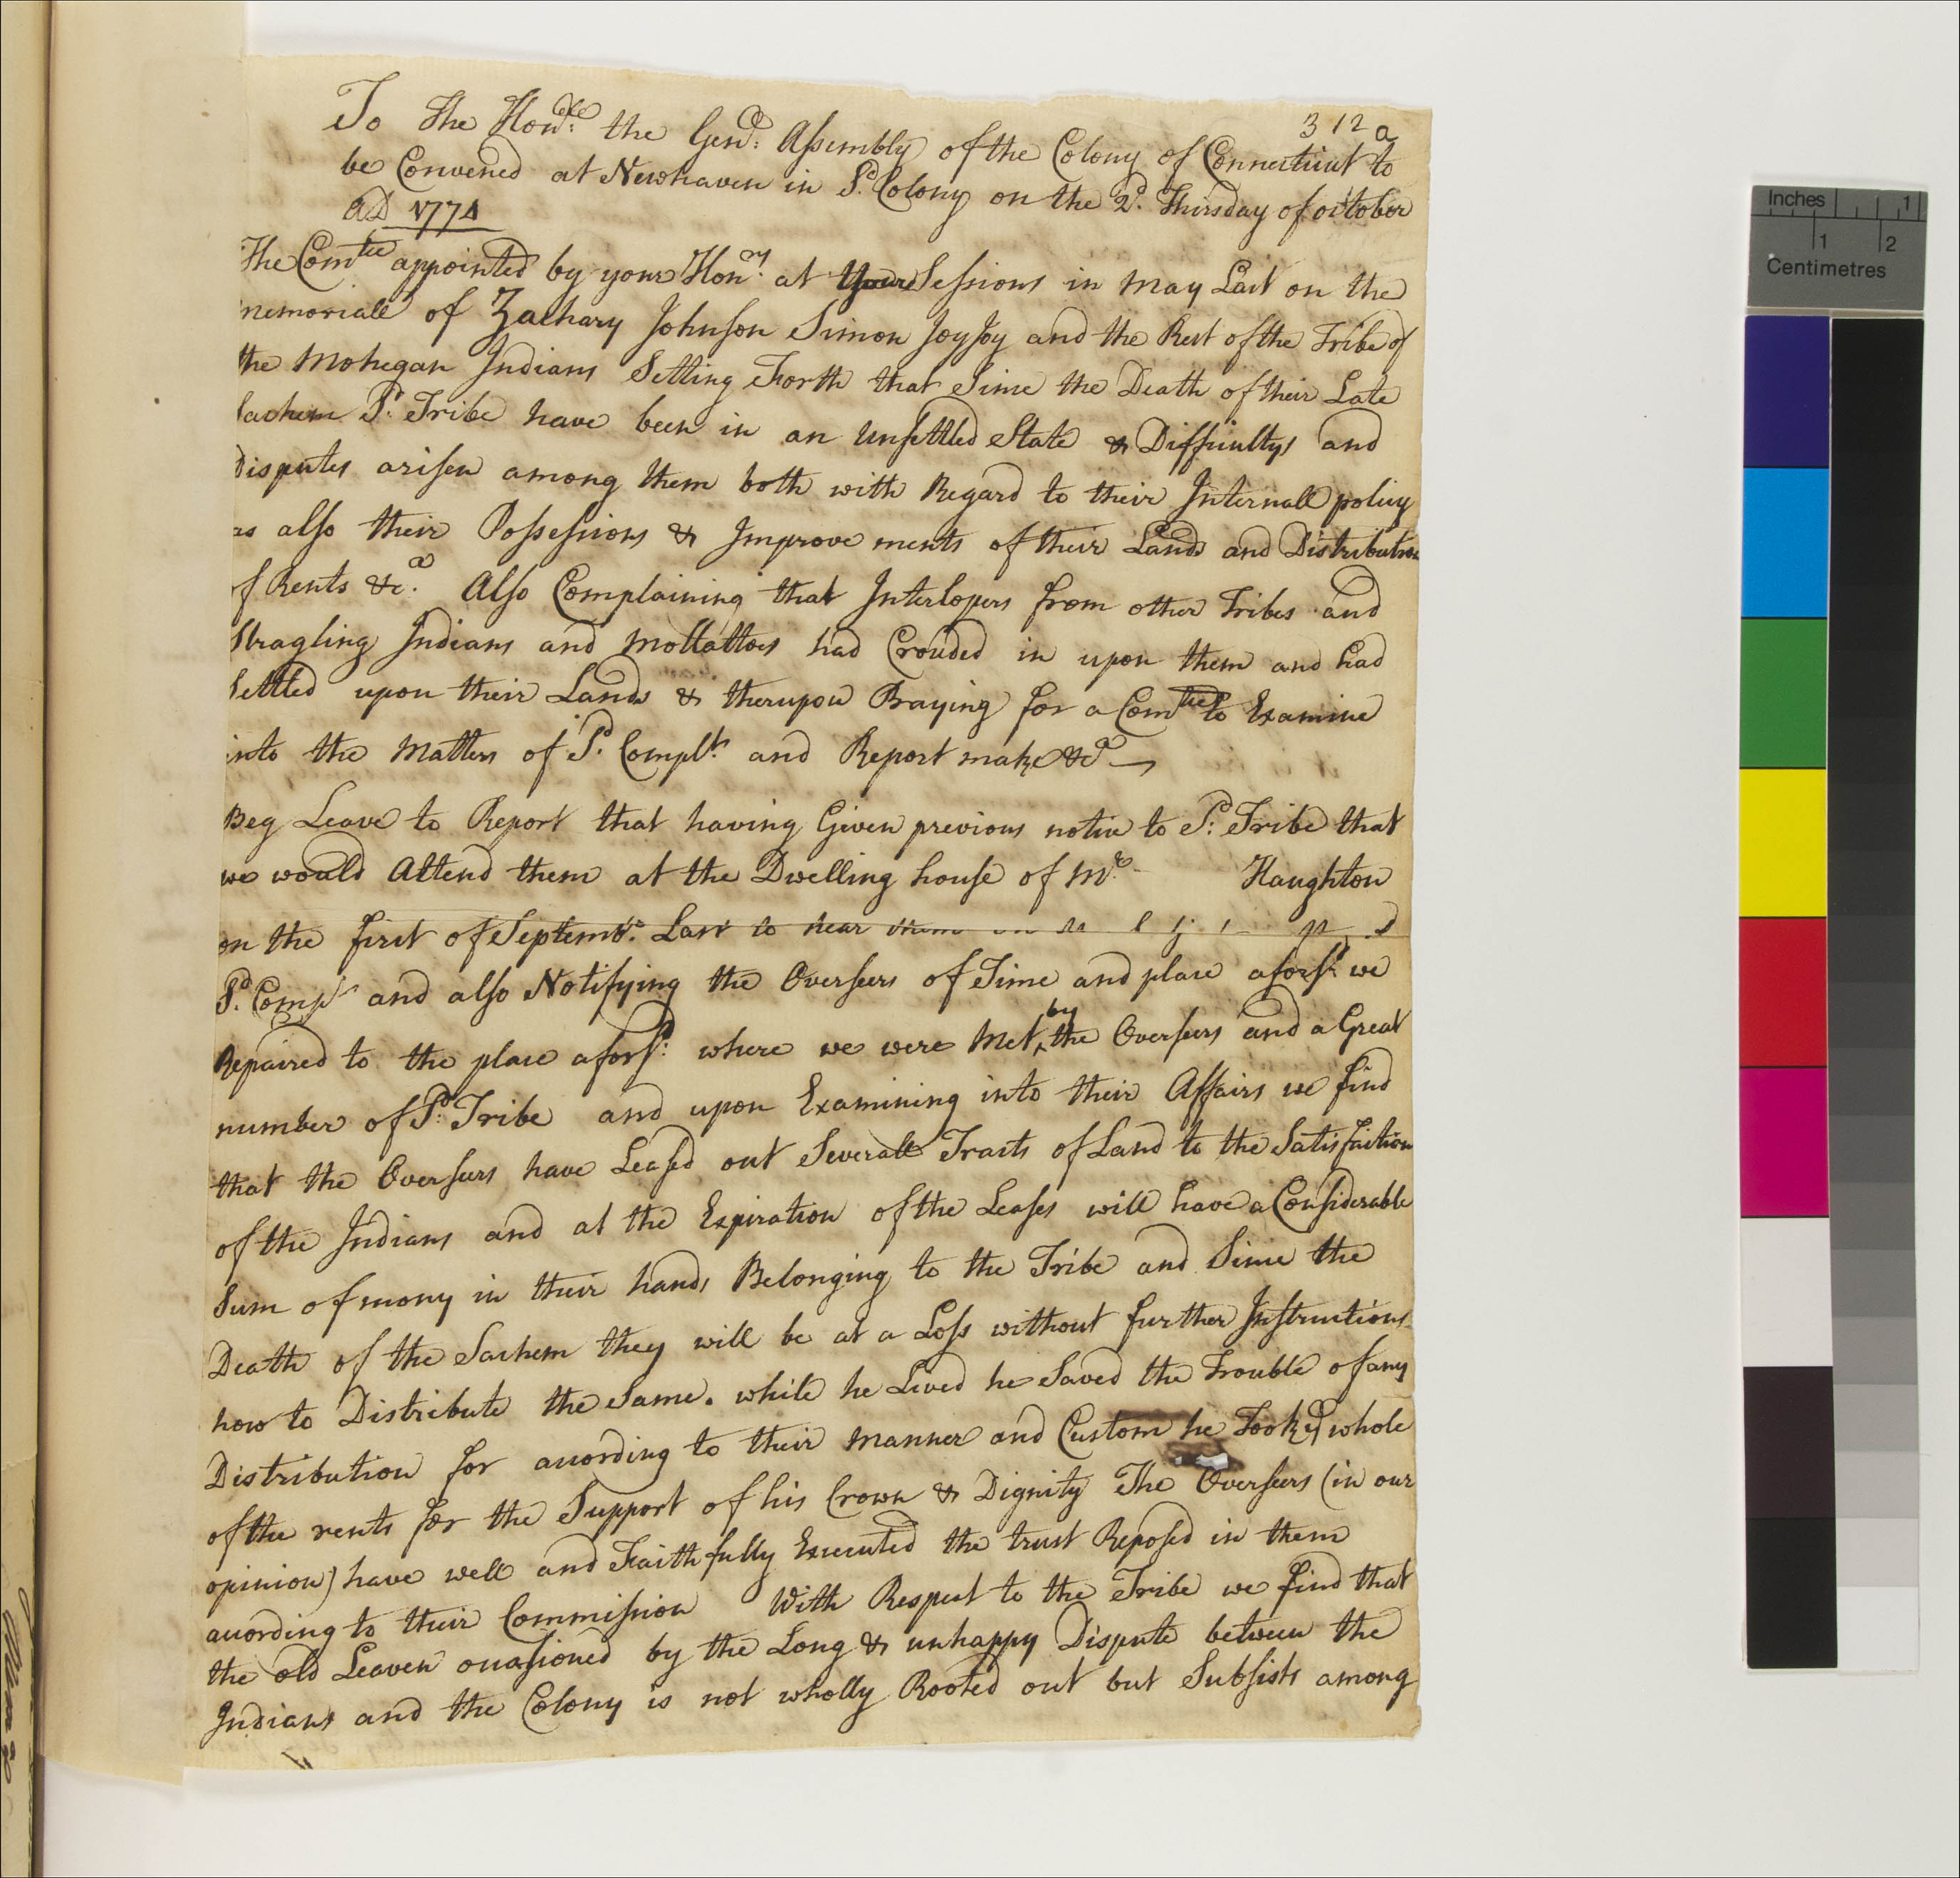 312a
To The Honble: the Genll: Assembly of the Colony of Connecticut to
be Convened at Newhaven in Sd. Colony on the 2d. Thirsday of october
AD 1774
The Comtee appointed by your Honrs: at your Sessions in may Last on the
memoriall of Zachary Johnson Simon JoyJoy and the Rest of the Tribe of
the Mohegan Indians Setting Forth that Since the Death of their Late
Sachem Sd. Tribe have been in an Unsettled State & Difficultys and
Disputes arisen among them both with Regard to their Internall policy
as also their Possessions & Improvements of their Lands and Distribution
of Rents &c.a Also Complaining that Interlopers from other Tribes and
Stragling Indians and Mollattoes had Crouded in upon them and had
Settled upon their Lands & therupon Praying for a Comtee to Examine
into the Matters of Sd. Complt. and Report make &ca
Beg Leave to Report that having Given previous notice to Sd: Tribe that
we would Attend them at the Dwelling house of Mr. Haughton
on the first of Septembr. Last to hear them on
Sd. Complt and also Notifying the Overseers of Time and place aforsd. we
Repaired to the place aforsd: where we were Met by the Overseers and a Great
number of Sd. Tribe and upon Examining into their Affairs we find
that the Overseers have Leased out Severall Tracts of Land to the Satisfaction
of the Indians and at the Expiration of the Leases will have a Considerable
Sum of mony in their hands Belonging to the Tribe and Since the
Death of the Sachem they will be at a Loss without further Instructions
how to Distribute the Same. while he Lived he Saved the Trouble of any
Distribution for according to their manner and Custom he Took ye whole
of the rents for the Support of his Crown & Dignity The Overseers (in our
opinion) have well and Faithfully Executed the trust Reposed in them
according to their Commission With Respect to the Tribe we find that
the old Leaven occasioned by the Long & unhappy Dispute between the
Indians and the Colony is not wholly Rooted out but Subsists among
Inches 1
1 2
Centimetres